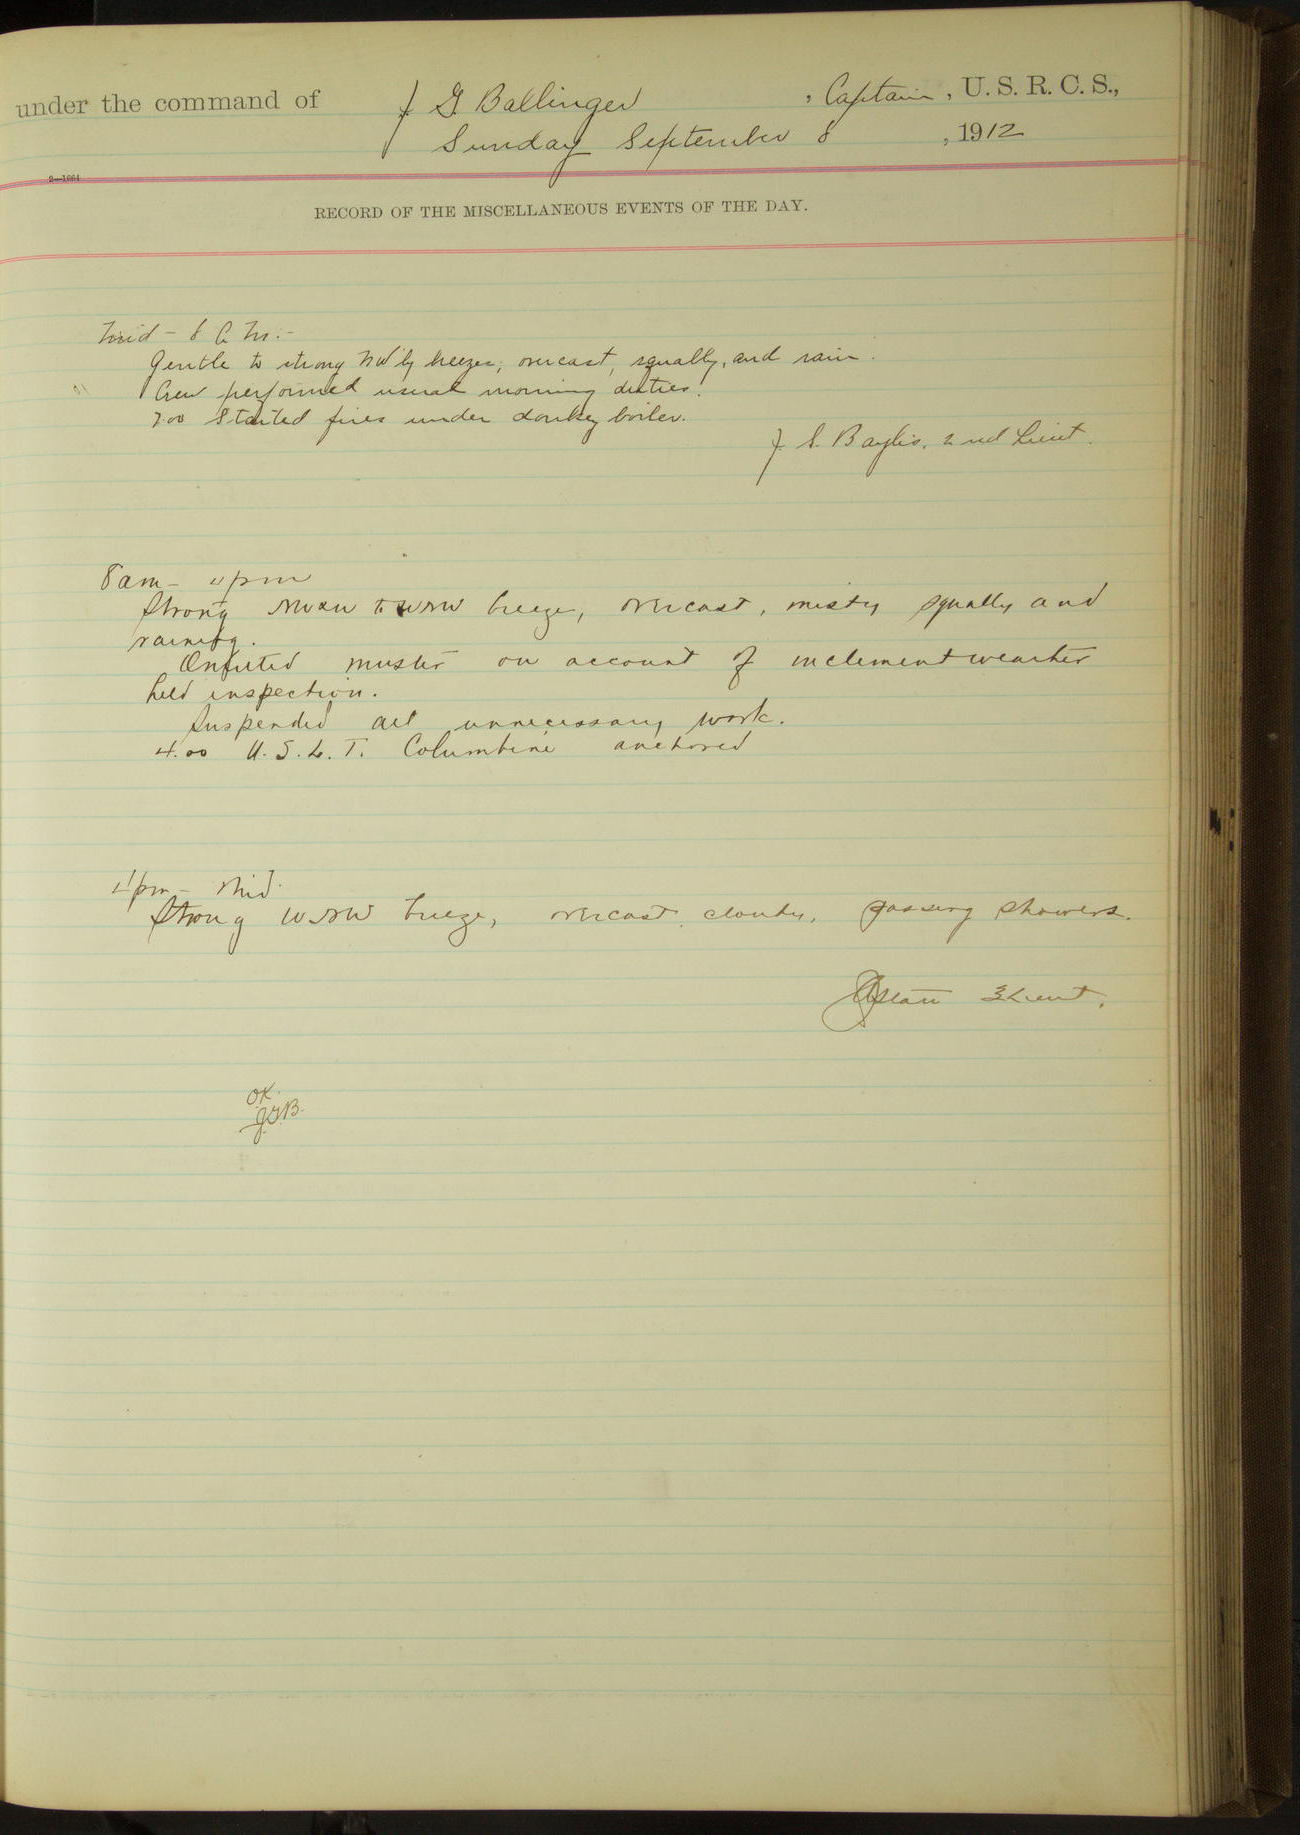 under the command of J. G. Ballinger, Captain, U. S. R. C. S.,
Sunday September 8, 1912
2—1664
RECORD OF THE MISCELLANEOUS EVENTS OF THE DAY.
Mid - 8 A. M. -
Gentle to strong NW'ly breezes, overcast, squally, and rain.
Crew performed usual morning duties.
7.00 Started fires under donkey boiler.
J. S. Baylis, 2nd Lieut.
8am - 4pm
Strong to WNW breeze, overcast, misty squally and
raining.
Omitted muster on account of inclement weather
held inspection.
Suspended all unnecessary work.
4.00 U. S. L. T. Columbine anchored
4pm - Mid.
Strong WNW breeze, overcast cloudy, passing showers.
3 Lieut.
OK.
JGB.